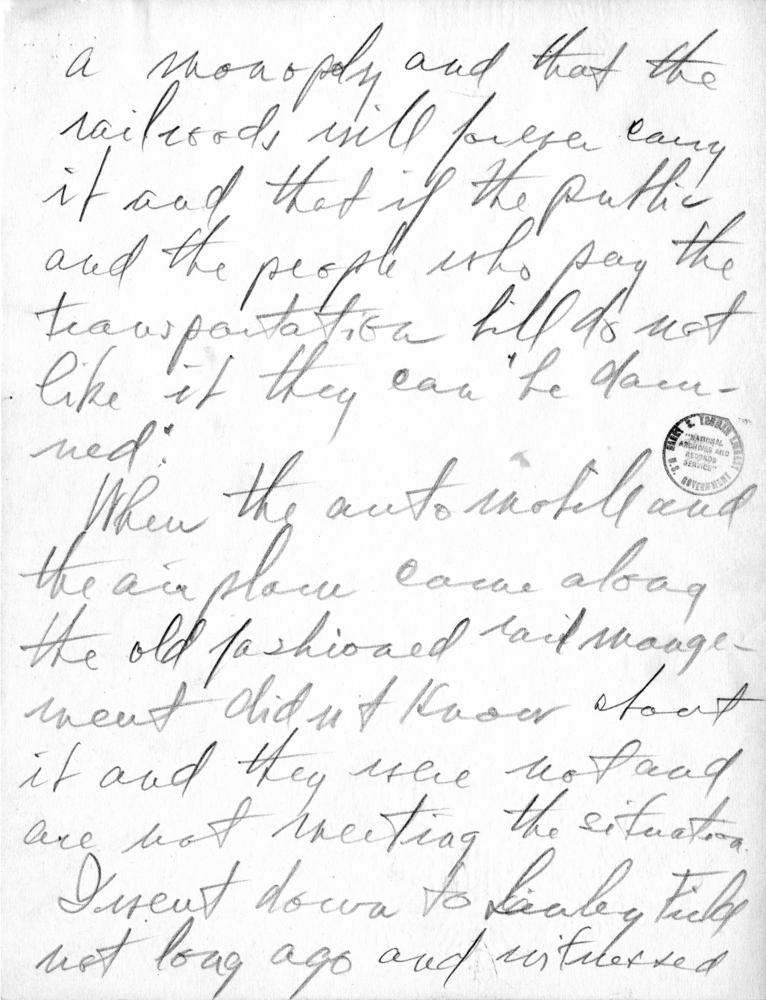 a monopoly and that the
railroads will forever carry
it and that if the public
and the people who pay the
transportation bill do not
like it they can "be dam-
ned".
HARRY S. TRUMAN LIBRARY
"NATIONAL
ARCHIVES AND
RECORDS
SERVICE"
U.S. GOVERNMENT
When the automobile and
the air plane came along
the old fashioned rail mange-
ment didn't know about
it and they were not and
are not meeting the situation.
I went down to Field
not long ago and witnessed